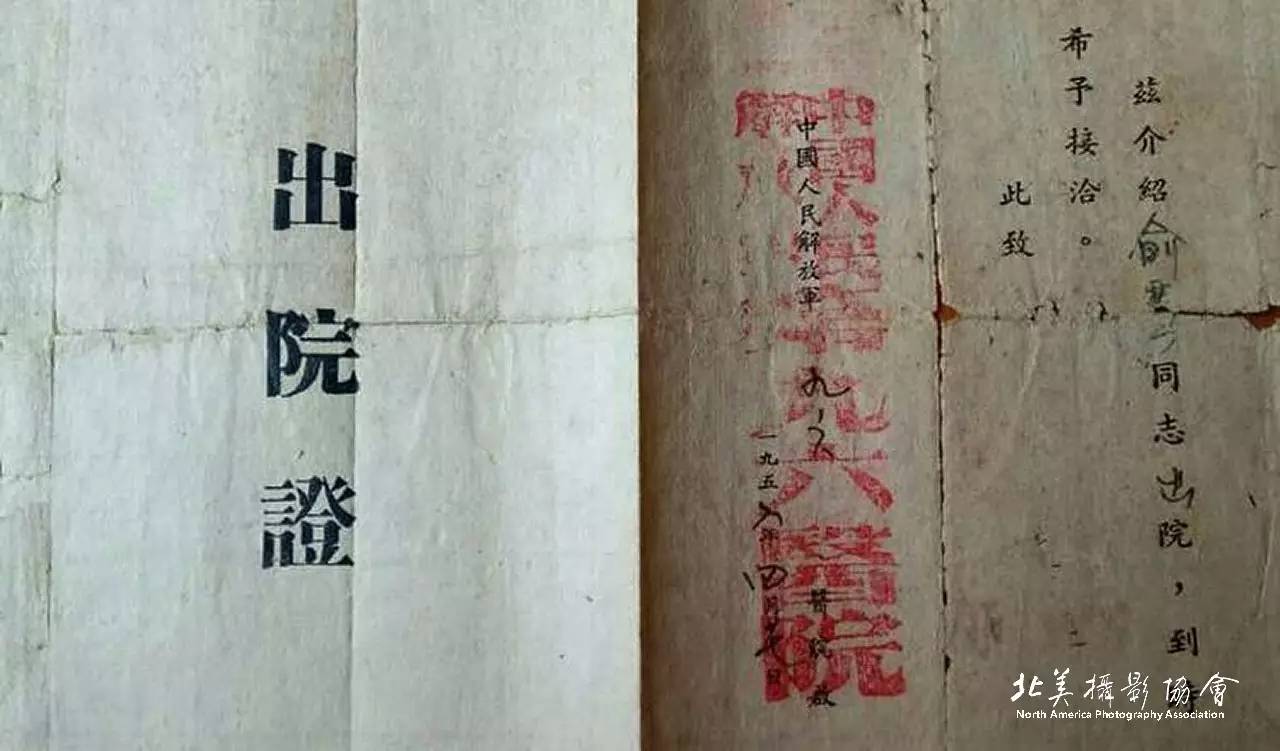 出院證
茲介紹俞同志出院，到時
希予接洽。
此致
中國人民解放軍九六醫院啟
一九五八年四月日
中國人民九六醫院
北美攝影協會
North America Photography Association